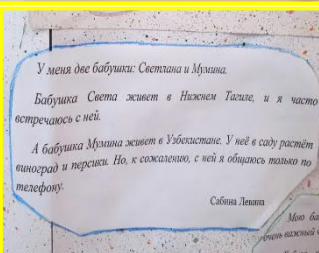 У меня две бабушки: Светлана и Мумина.
Бабушка Света живет в Нижнем Тагиле, и я часто
встречаюсь с ней.
А бабушка Мумина живет в Узбекистане. У неё в саду растёт
виноград и персики. Но, к сожалению, с ней я общаюсь только по
телефону.
Сабина Левина
Мою ба
очень важный ч